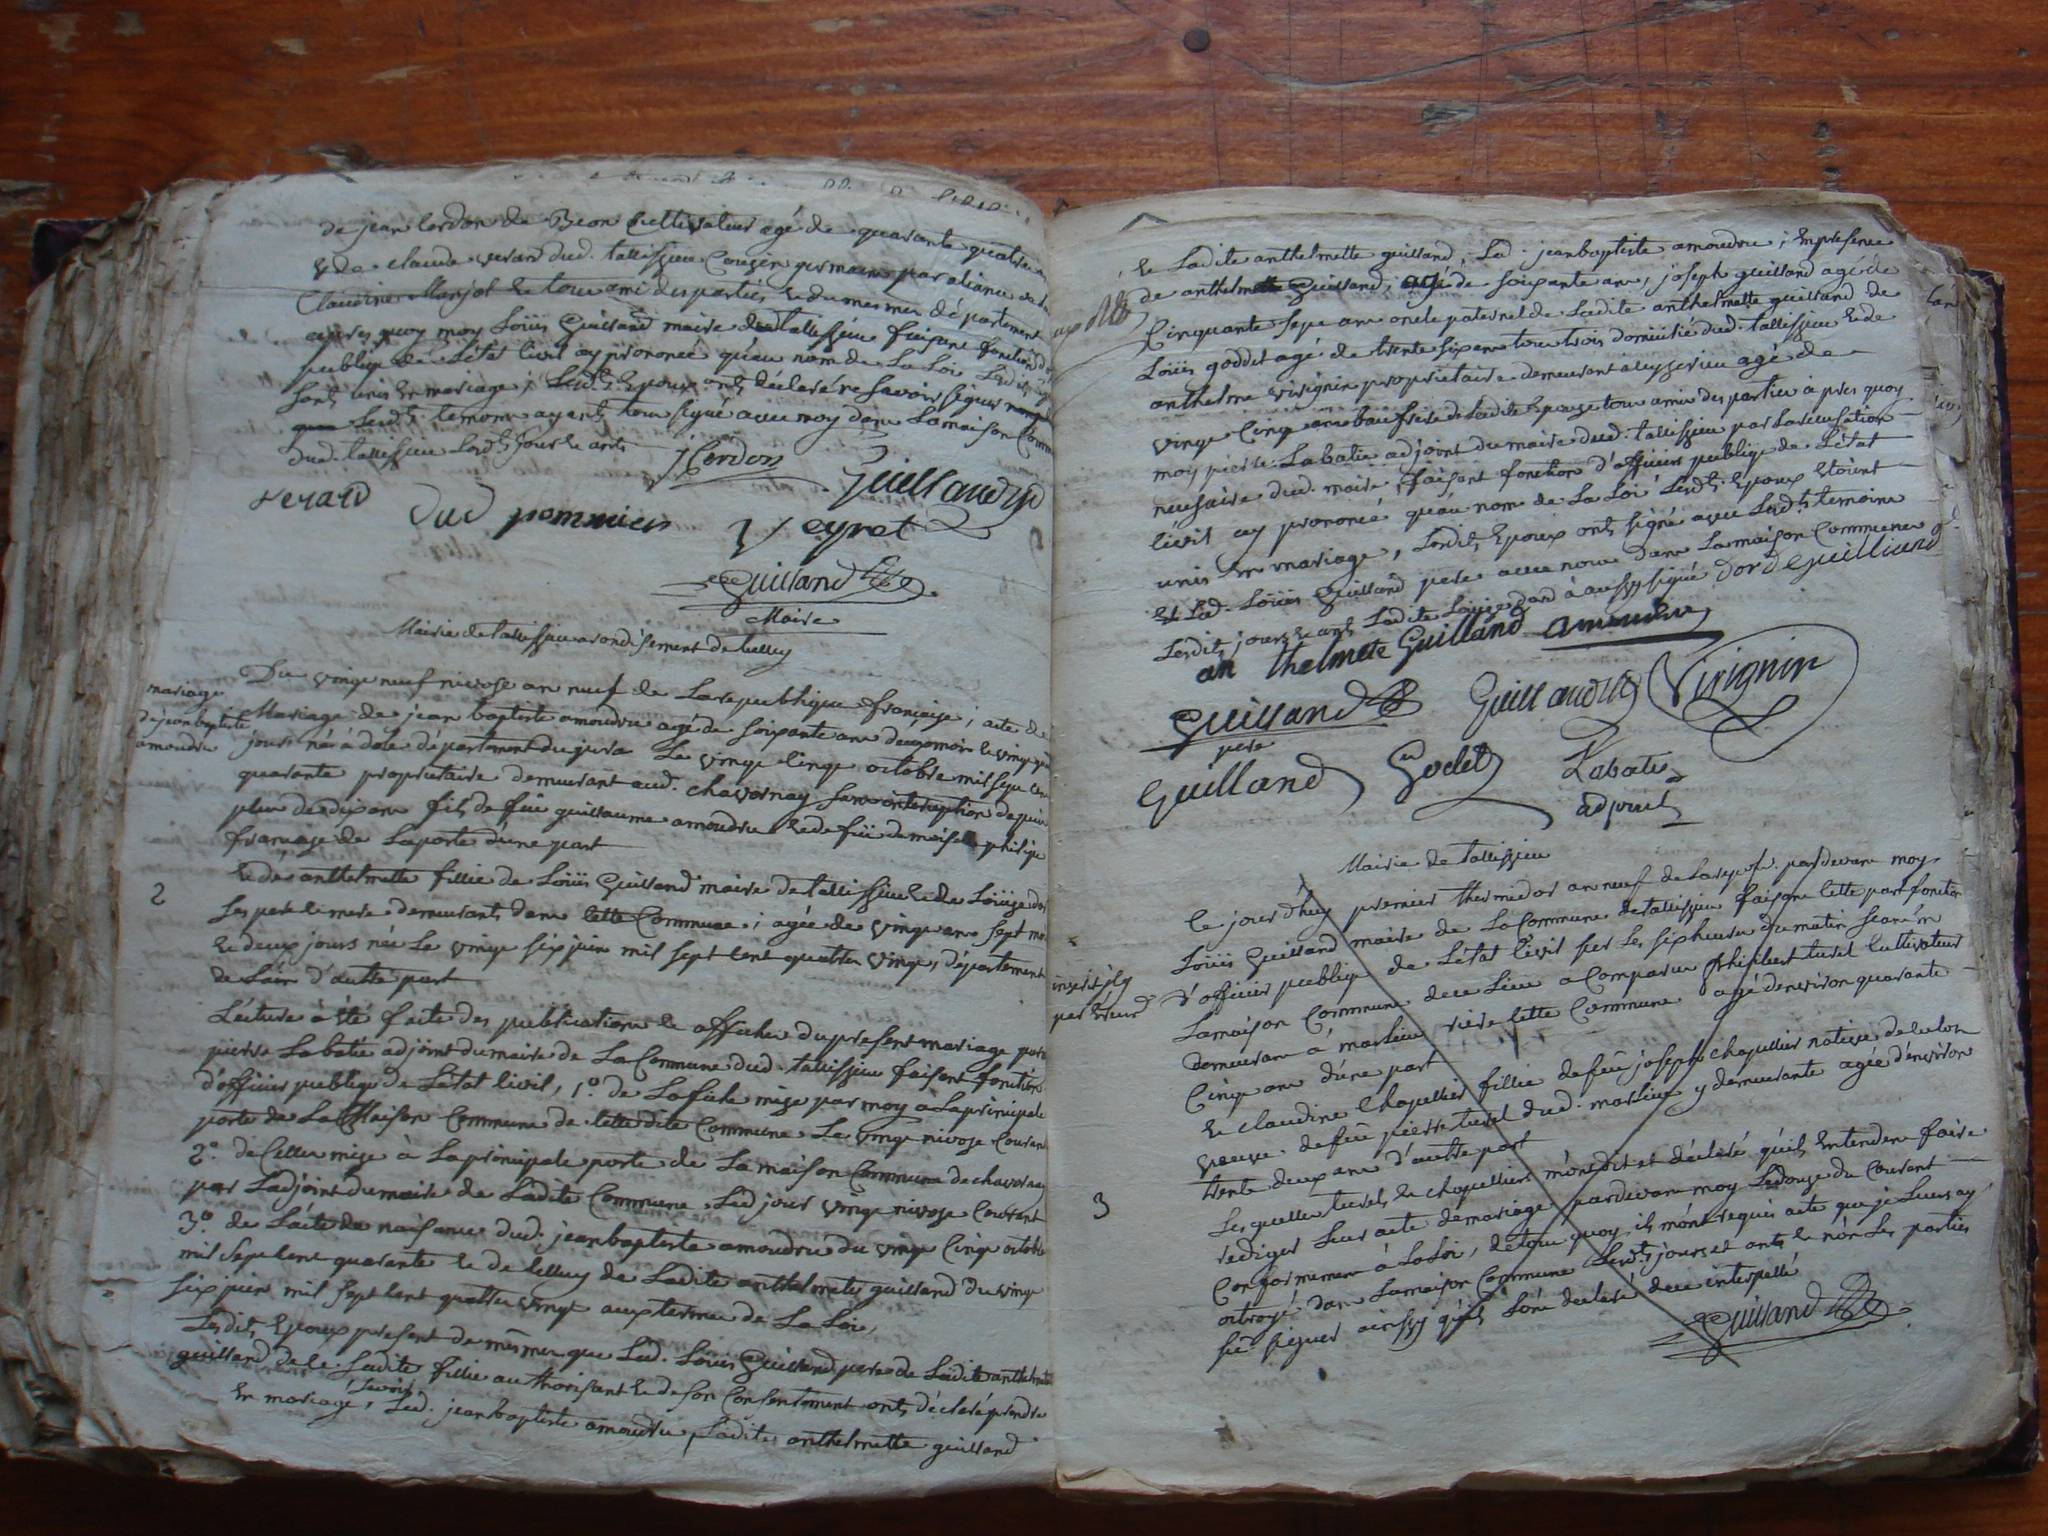 de jean Cerdon de Beon Cultivateur agé de quarante quatre
& de claude verard dud. tallissieu Cousin germain par aliance de
Claudine Marjol & tous ami des parties & du mesme département
apprès quoy moy Loüis Guilland maire de tallissieu faisant fonction
publique de L'état Civil ay prononcé qu'au nom de La Loi Lesdits
sont unis En mariage ; Lesdts. Epoux onts déclaré ne savoir signer
Lesdts. temoins ayants tous signé avec moy dans La maison Comm
dud. tallissieu Lesdts jour & ants
j Cerdon
Guilland
verard
dud pommier
Veyret
Guilland
Maire
Mairie de tallissieu arondissement de belley
mariage
de jean baptiste
amoudru
Du vingt neuf nivose an neuf de La republique francaise ; acte de
Mariage de jean baptiste amoudru agé de soixante ans deux mois & vingt
jours né à dole département du jura Le vingt Cinq octobre mil sept cent
quarante propriétaire demeurant aud. chavornay sans interuption depuis
plus de dix ans fils de feü guillaume amoudru & de feü demoiselle philipe
francoise de Laporte d'une part
2
& de anthelmette fillie de Loüis Guilland maire de tallissieu & de Loüize dor
Ses pere & mere demeurants dans Cette Commune ; agée de vingt ans sept moi
& deux jours née Le vingt six juin mil sept Cent quatre vingt, département
de Lain d'autre part
Lecture à été faite des publications & affiches du present mariage par
pierre Labatie adjoint du maire de La Commune dud. tallissieu faisant fonction
d'officier publique de L'état Civil, 1.° de Lafiche mise par moy a La principale
porte de La Maison Commune de Cette dite Commune Le vingt nivose Courant
2.° de Celle mise à La principale porte de La maison Commune de chavornay
par L'adjoint du maire de Ladite Commune, Led jour vingt nivose Courant
3.° de L'acte de naissance dud. jean baptiste amoudru du vingt Cinq octobre
mil sept Cent quarante & de Celluy de Ladite anthelmette guilland du vingt
six juin mil sept Cent quatre vingt aux termes de La Loi,
Lesdits Epoux present de mesme que Led. Loüis Guilland pere de Ladite anthelmette
guilland de Ladite fillie authorisant & de son Consentement onts déclaré prendre
En mariage, savoir Led. jean baptiste amoudru, Ladite anthelmette guilland
& Ladite anthelmette guilland, Led. jean baptiste amoudru ; En presence
de anthelmette Guilland, agé de soixante ans, joseph guilland agé de
Cinquante sept ans oncle paternel de Ladite anthelmette guilland de
Loüis goddet agé de trente six ans tous trois domicilié dud. tallissieu & de
anthelme virignin proprietaire demeurant a leyssieu agé de
vingt Cinq ans beaufrere de Ladite Epouse tous amis des parties à pres quoy
moy pierre Labatie adjoint du maire dud. tallissieu par La recusation
nessaire dud. maire, faisant fonction d'officier publique de L'état
Civil ay prononcé qu'au nom de La Loi Lesdts. Epoux Etoint
unis En mariage, Lesdits Epoux onts signé avec Lesdts. temoins
& Led. Loüis Guilland pere avec nous dans La maison Commune
Lesdits jours & ants Ladite Loüize dord à aussy signé dord Guilliand
an thelmete Guilland
amoudru
Guilland
pere
Guilland
Virignin
Guilland
Godet
Labatie
adjoint
Mairie de tallissieu
Ce jourd'huy premier thermidor an neuf de La repub. pardevant moy
Loüis Guilland maire de La Commune de tallissieu faisant Cette part fonction
inserit jcy
par Erreur
d'officier publique de L'état Civil sur Les six heures du matin scant En
La maison Commune de ce Lieu a Comparu philibert turel Cultivateur
demeurant à marlieu riere Cette Commune agé d'environ quarante
Cinq ans d'une part
& claudine Chapellier fillie de feü joseph chapellier native de Culoz
veuve de feü pierre turel dud. marlieu y demeurante agée d'environ
trente deux ans d'autre part
3
Lesquelles turel & chapelliers m'ont dit et déclaré qu'ils Entendent faire
rediger Leur acte de mariage pardevant moy Le douze du Courant
Conformement à La Loi, de tout quoy ils m'ont requis acte que je Leurs ay
octroyé dans La maison Commune Lesdts jours et ants & non Les parties
sü signer ainssy qu'ils L'ont declaré de ce interpellé
Guilland